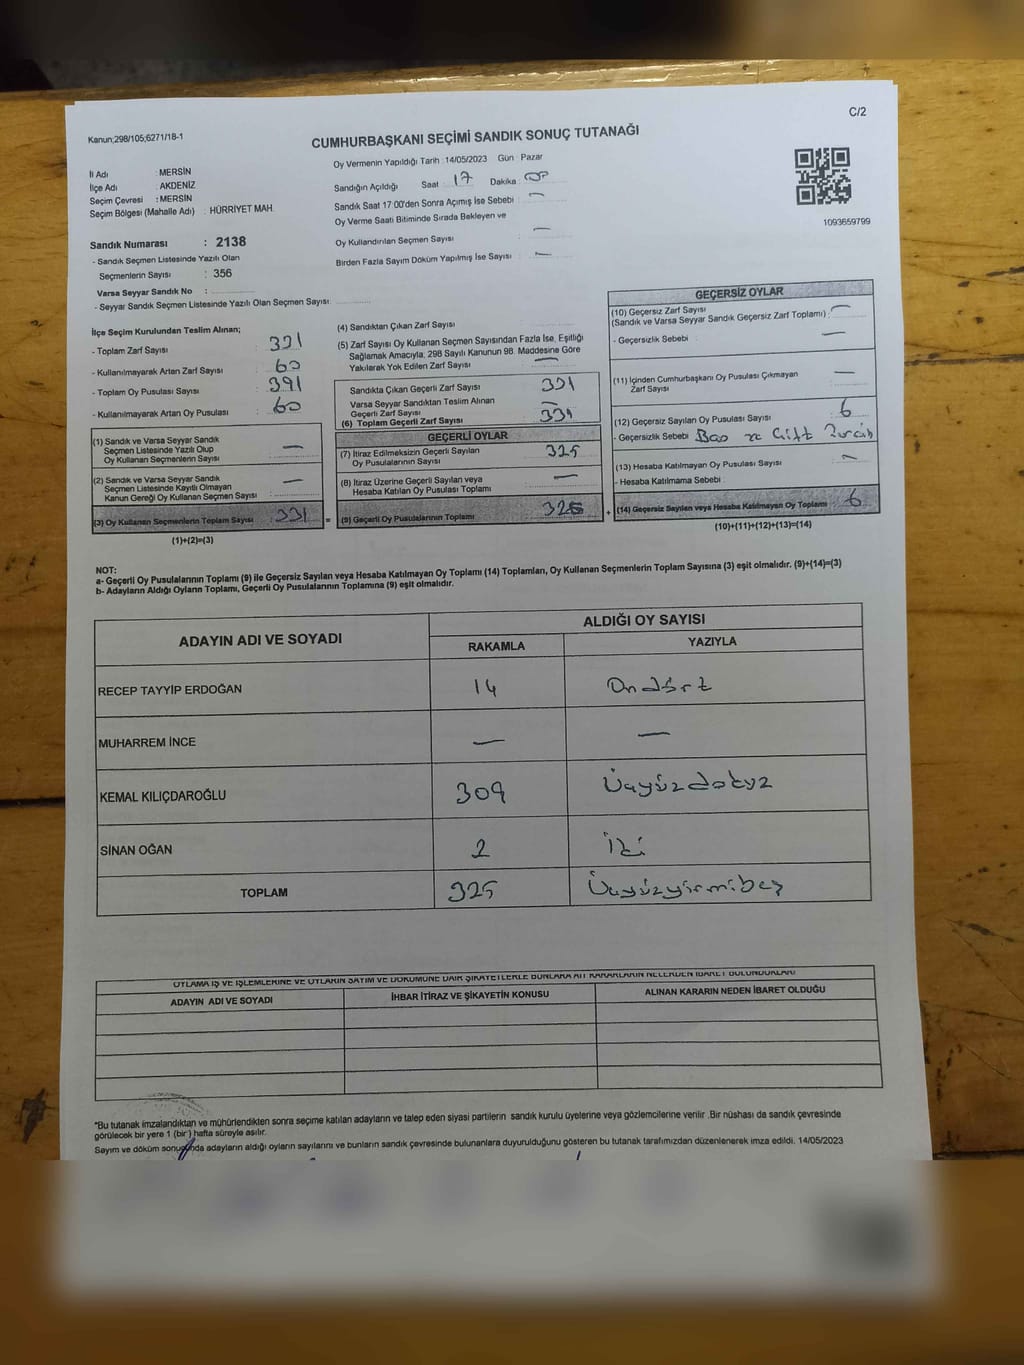 C/2
Kanun;298/105;6271/18-1
CUMHURBAŞKANI SEÇİMİ SANDIK SONUÇ TUTANAĞI
Oy Vermenin Yapıldığı Tarih : 14/05/2023 Gün : Pazar
İl Adı : MERSİN
İlçe Adı : AKDENİZ
Seçim Çevresi : MERSİN
Seçim Bölgesi (Mahalle Adı) : HÜRRİYET MAH.
Sandığın Açıldığı Saat : 17 Dakika :
Sandık Saat 17:00'den Sonra Açımış İse Sebebi : —
Oy Verme Saati Bitiminde Sırada Bekleyen ve
Oy Kullandırılan Seçmen Sayısı : —
Birden Fazla Sayım Döküm Yapılmış İse Sayısı : —
1093659799
Sandık Numarası : 2138
- Sandık Seçmen Listesinde Yazılı Olan
Seçmenlerin Sayısı : 356
Varsa Seyyar Sandık No :
- Seyyar Sandık Seçmen Listesinde Yazılı Olan Seçmen Sayısı:
İlçe Seçim Kurulundan Teslim Alınan;
- Toplam Zarf Sayısı : 391
- Kullanılmayarak Artan Zarf Sayısı : 60
- Toplam Oy Pusulası Sayısı : 391
- Kullanılmayarak Artan Oy Pusulası : 60
(1) Sandık ve Varsa Seyyar Sandık
Seçmen Listesinde Yazılı Olup
Oy Kullanan Seçmenlerin Sayısı : —
(2) Sandık ve Varsa Seyyar Sandık
Seçmen Listesinde Kayıtlı Olmayan
Kanun Gereği Oy Kullanan Seçmen Sayısı : —
(3) Oy Kullanan Seçmenlerin Toplam Sayısı : 331 =
(1)+(2)=(3)
(4) Sandıktan Çıkan Zarf Sayısı :
(5) Zarf Sayısı Oy Kullanan Seçmen Sayısından Fazla İse, Eşitliği
Sağlamak Amacıyla, 298 Sayılı Kanunun 98. Maddesine Göre
Yakılarak Yok Edilen Zarf Sayısı : —
Sandıkta Çıkan Geçerli Zarf Sayısı : 331
Varsa Seyyar Sandıktan Teslim Alınan
Geçerli Zarf Sayısı : —
(6) Toplam Geçerli Zarf Sayısı : 331
GEÇERLİ OYLAR
(7) İtiraz Edilmeksizin Geçerli Sayılan
Oy Pusulasının Sayısı : 325
(8) İtiraz Üzerine Geçerli Sayılan veya
Hesaba Katılan Oy Pusulası Toplamı : —
(9) Geçerli Oy Pusulalarının Toplamı : 325 +
GEÇERSİZ OYLAR
(10) Geçersiz Zarf Sayısı
(Sandık ve Varsa Seyyar Sandık Geçersiz Zarf Toplamı) : —
- Geçersizlik Sebebi : —
(11) İçinden Cumhurbaşkanı Oy Pusulası Çıkmayan
Zarf Sayısı : —
(12) Geçersiz Sayılan Oy Pusulası Sayısı : 6
- Geçersizlik Sebebi :
(13) Hesaba Katılmayan Oy Pusulası Sayısı : —
- Hesaba Katılmama Sebebi :
(14) Geçersiz Sayılan veya Hesaba Katılmayan Oy Toplamı : 6
(10)+(11)+(12)+(13)=(14)
NOT:
a- Geçerli Oy Pusulalarının Toplamı (9) ile Geçersiz Sayılan veya Hesaba Katılmayan Oy Toplamı (14) Toplamları, Oy Kullanan Seçmenlerin Toplam Sayısına (3) eşit olmalıdır. (9)+(14)=(3)
b- Adayların Aldığı Oyların Toplamı, Geçerli Oy Pusulalarının Toplamına (9) eşit olmalıdır.
ADAYIN ADI VE SOYADI
ALDIĞI OY SAYISI
RAKAMLA YAZIYLA
RECEP TAYYİP ERDOĞAN 14 On dört
MUHARREM İNCE — —
KEMAL KILIÇDAROĞLU 309 Üçyüzdokuz
SİNAN OĞAN 2 İki
TOPLAM 325 Üçyüzyirmibeş
OYLAMA İŞ VE İŞLEMLERİNE VE OYLARIN SAYIM VE DÖKÜMÜNE DAİR ŞİKAYETLERLE BUNLARA AİT KARARLARIN NELERDEN İBARET BULUNDUKLARI
ADAYIN ADI VE SOYADI İHBAR İTİRAZ VE ŞİKAYETİN KONUSU ALINAN KARARIN NEDEN İBARET OLDUĞU
*Bu tutanak imzalandıktan ve mühürlendikten sonra seçime katılan adayların ve talep eden siyasi partilerin sandık kurulu üyelerine veya gözlemcilerine verilir .Bir nüshası da sandık çevresinde
görülecek bir yere 1 (bir) hafta süreyle asılır.
Sayım ve döküm sonucunda adayların aldığı oyların sayılarını ve bunların sandık çevresinde bulunanlara duyurulduğunu gösteren bu tutanak tarafımızdan düzenlenerek imza edildi. 14/05/2023